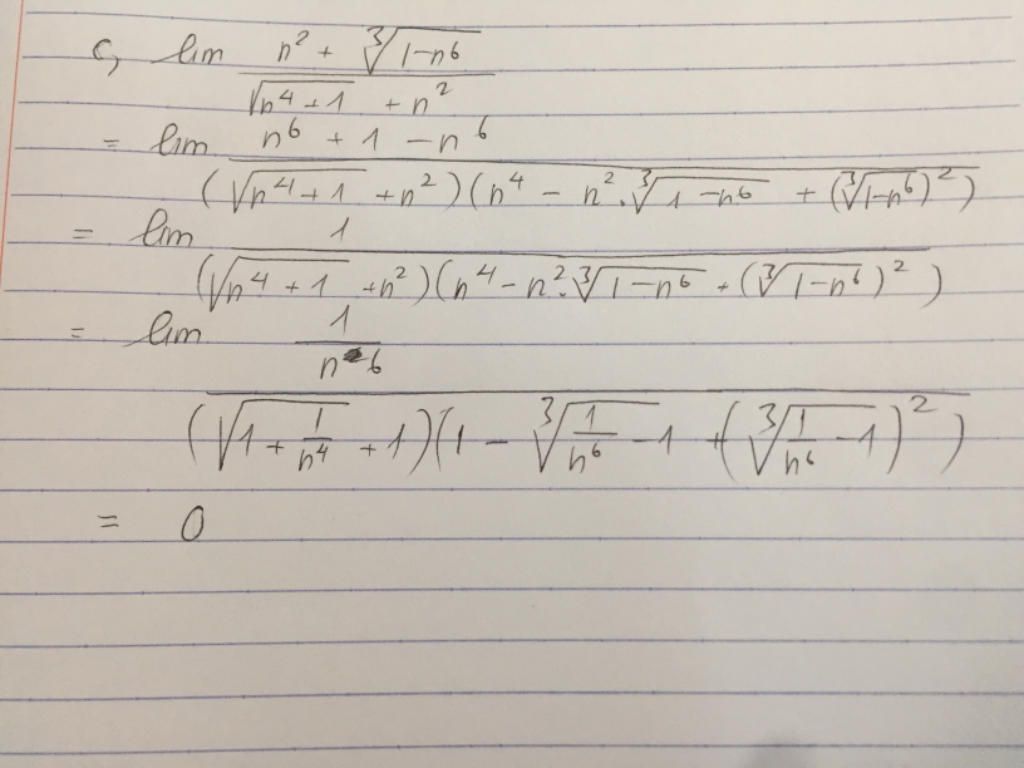 c, lim (n² + ∛(1-n⁶)) / (√(n⁴+1) + n²)
= lim (n⁶ + 1 - n⁶) / ((√(n⁴+1) + n²)(n⁴ - n².∛(1-n⁶) + (∛(1-n⁶))²))
= lim 1 / ((√(n⁴+1) + n²)(n⁴ - n².∛(1-n⁶) + (∛(1-n⁶))²))
= lim (1/n⁶) / ((√(1+1/n⁴) + 1)(1 - ∛(1/n⁶ - 1) + (∛(1/n⁶ - 1))²))
= 0